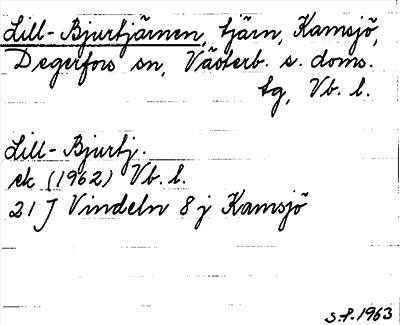 Lill-Bjurtjärnen, tjärn, Kamsjö,
Degerfors sn, Västerb. s. doms.
tg, Vb. l.
Lill-Bjurtj.
ek (1962) Vb. l.
21 J Vindeln 8 j Kamsjö
S.P. 1963